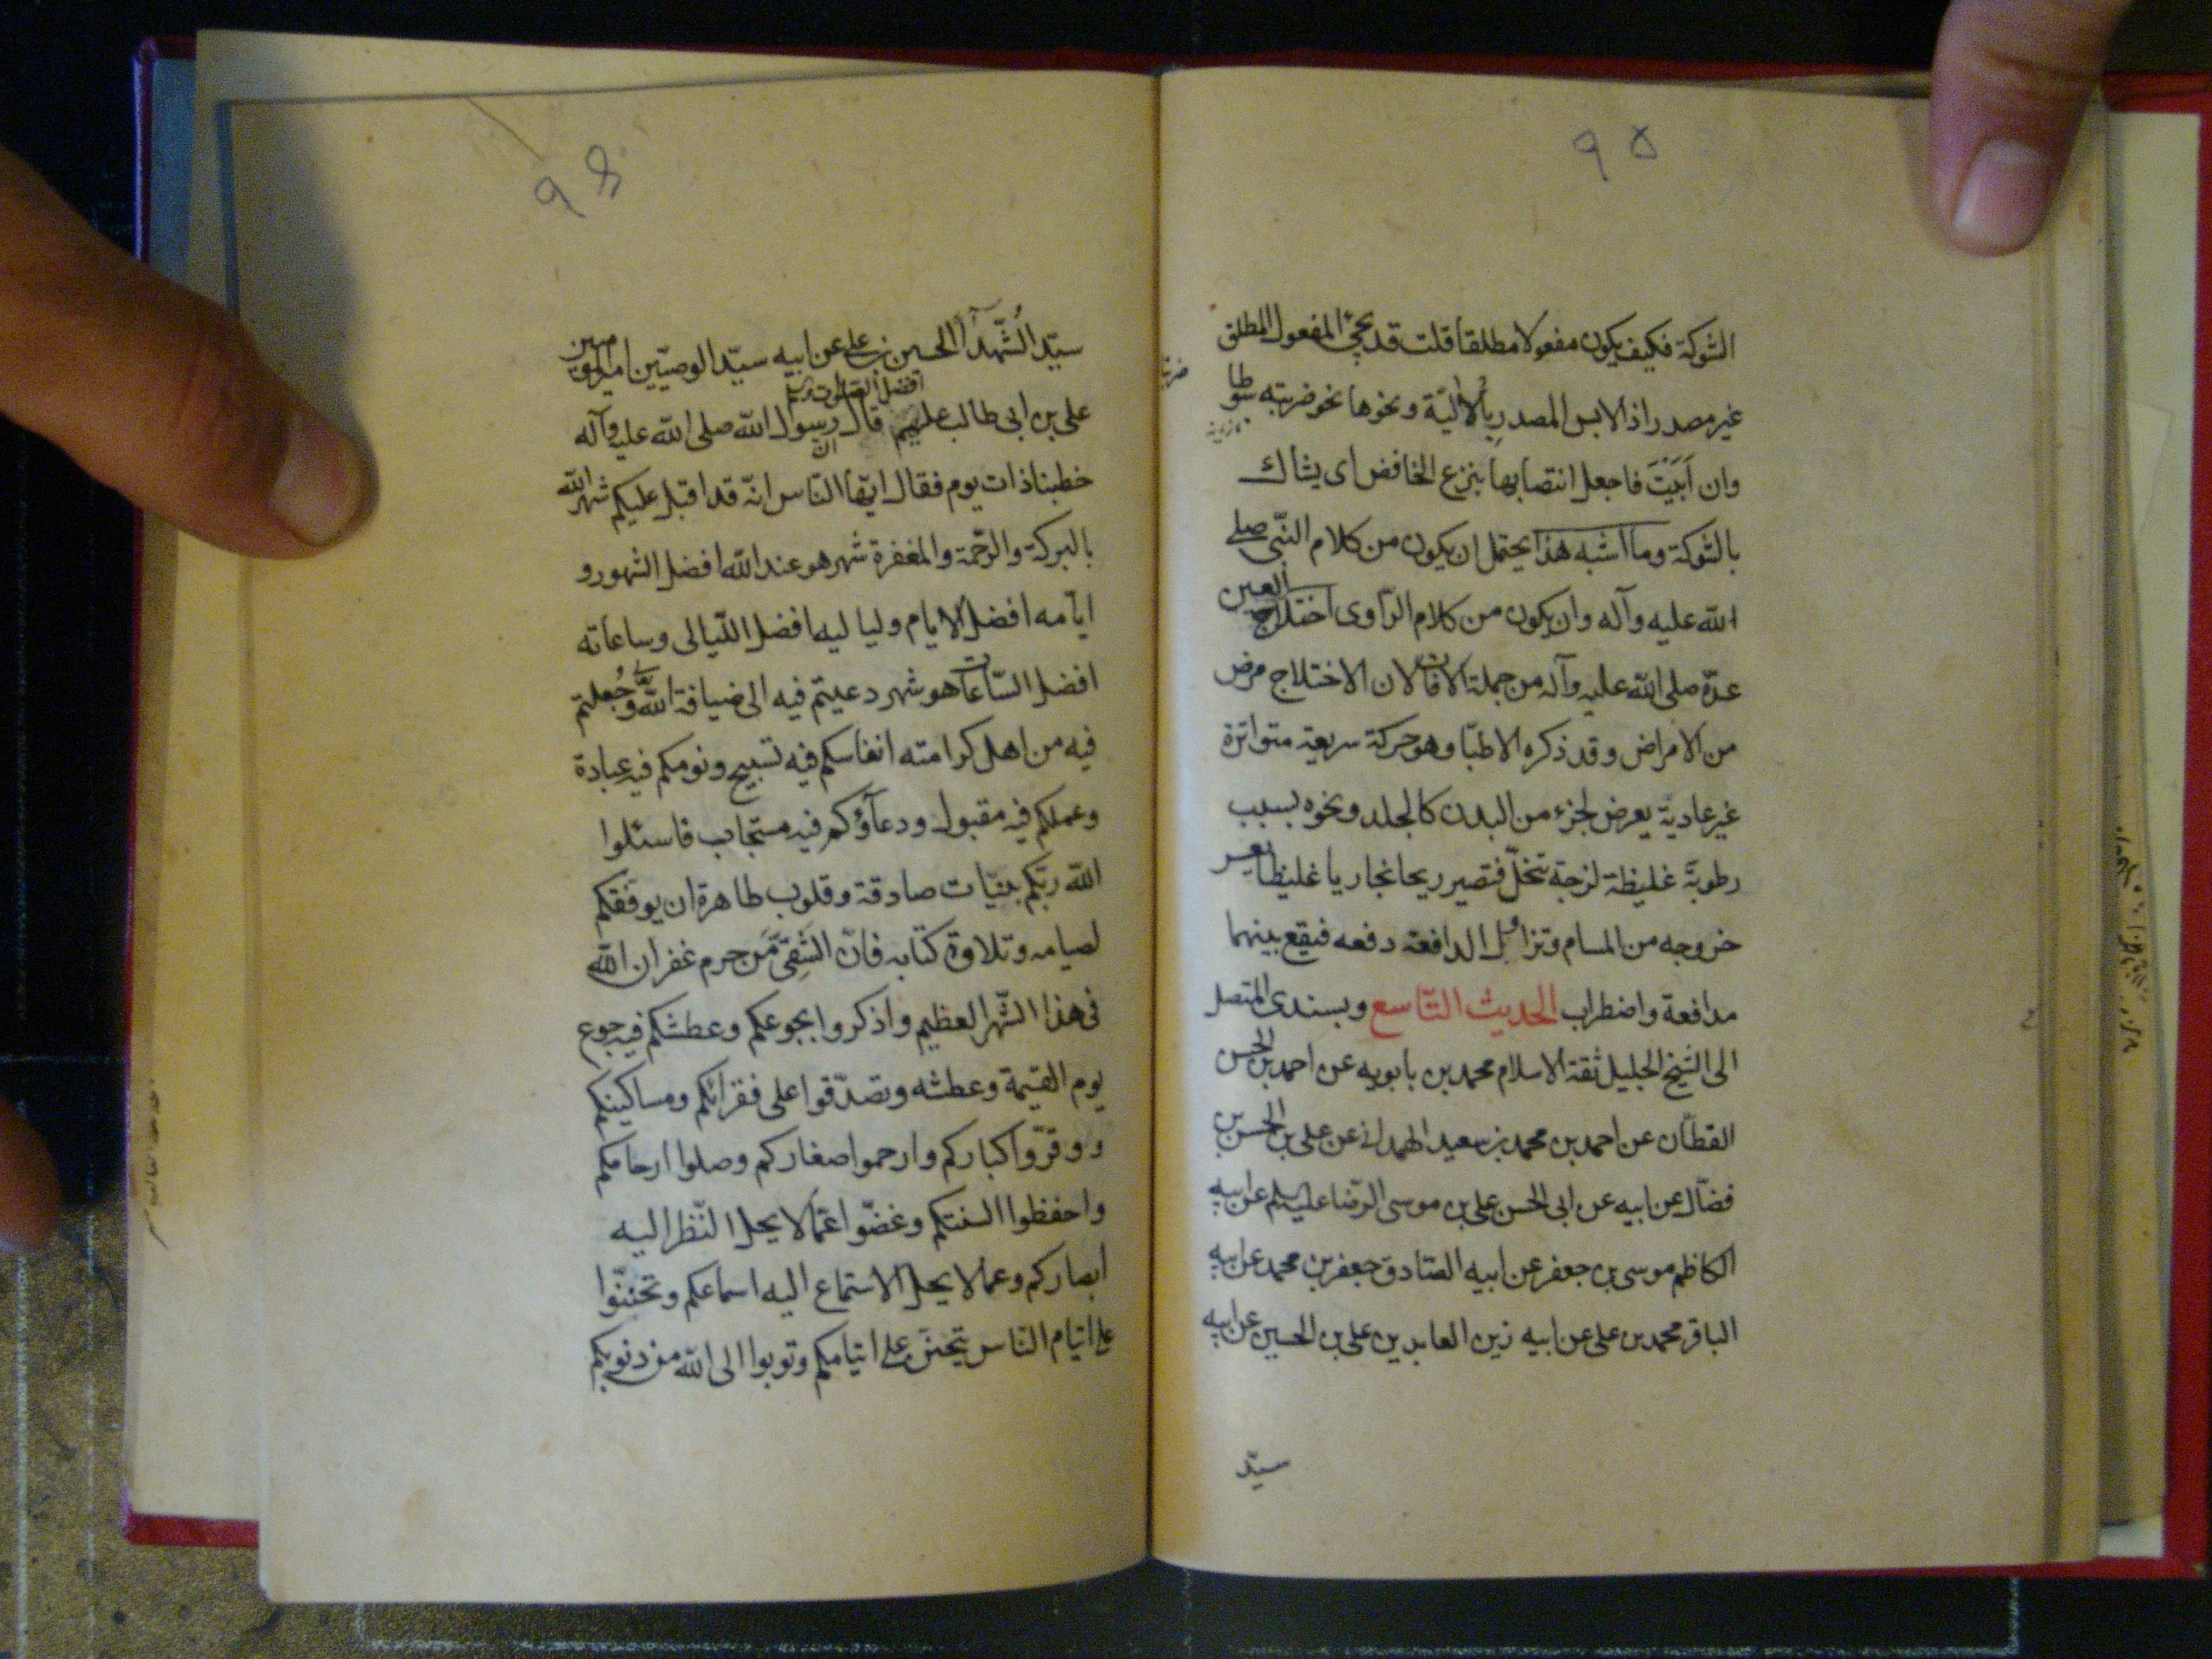 ٩٥
الشوكة فكيف يكون مفعولا مطلقا قلت قد يجئ المفعول المطلق
غير مصدر اذا لابس المصدر بالالية ونحوها نحو ضربته سوطا
وان اَبَيْتَ فاجعل انتصابها بنزع الخافض اى يشاك
بالشوكة وما اشبه هذا يحتمل ان يكون من كلام النبى صلى
الله عليه وآله وان يكون من كلام الراوى اختلاج العين
عدّه صلى الله عليه وآله من جملة الافات لان الاختلاج مرض
من الامراض وقد ذكره الاطبا وهو حركة سريعة متواترة
غير عادية يعرض لجزء من البدن كالجلد ونحوه بسبب
رطوبة غليظة لزجة تنحلّ فتصير ريحا بخاريا غليظا يعسر
خروجه من المسام وتزاول الدافعة دفعه فيقع بينهما
مدافعة واضطراب الحديث التّاسع وبسندى المتصل
الى الشيخ الجليل ثقة الاسلام محمد بن بابويه عن احمد بن الحسن
القطّان عن احمد بن محمد بن سعيد الهمدانى عن على بن الحسن بن
فضّال عن ابيه عن ابى الحسن على بن موسى الرضا عليه السلم عن ابيه
الكاظم موسى بن جعفر عن ابيه الصّادق جعفر بن محمد عن ابيه
الباقر محمد بن على عن ابيه زين العابدين على بن الحسين عن ابيه
سيّد
٩٦
سيّد الشّهدآء الحسين بن على عن ابيه سيّد الوصيّين امير المؤمنين
على بن ابى طالب عليهم افضل الصلوات قال ان رسول الله صلى الله عليه وآله
خطبنا ذات يوم فقال ايّها النّاس انّه قد اقبل عليكم شهر الله
بالبركة والرّحمة والمغفرة شهر هو عند الله افضل الشهور و
ايّامه افضل الايام ولياليه افضل اللّيالى وساعاته
افضل السّاعات هو شهر دعيتم فيه الى ضيافة الله وجُعلتم
فيه من اهل كرامته انفاسكم فيه تسبيح ونومكم فيه عبادة
وعملكم فيه مقبول ودعآؤكم فيه مستجاب فاسئلوا
الله ربّكم بنيّات صادقة وقلوب طاهرة ان يوفقكم
لصيامه وتلاوة كتابه فانّ الشَقِىّ مَن حرم غفران الله
فى هذا الشّهر العظيم واذكروا بجوعكم وعطشكم فيه جوع
يوم القيمة وعطشه وتصدّقوا على فقرائكم ومساكينكم
ووقرّوا كباركم وارحموا صغاركم وصلوا ارحامكم
واحفظوا السنتكم وغضّوا عمّا لا يحل النّظر اليه
ابصاركم وعما لا يحل الاستماع اليه اسماعكم وتحننّوا
على ايتام النّاس يتحنّن على ايتامكم وتوبوا الى الله من ذنوبكم